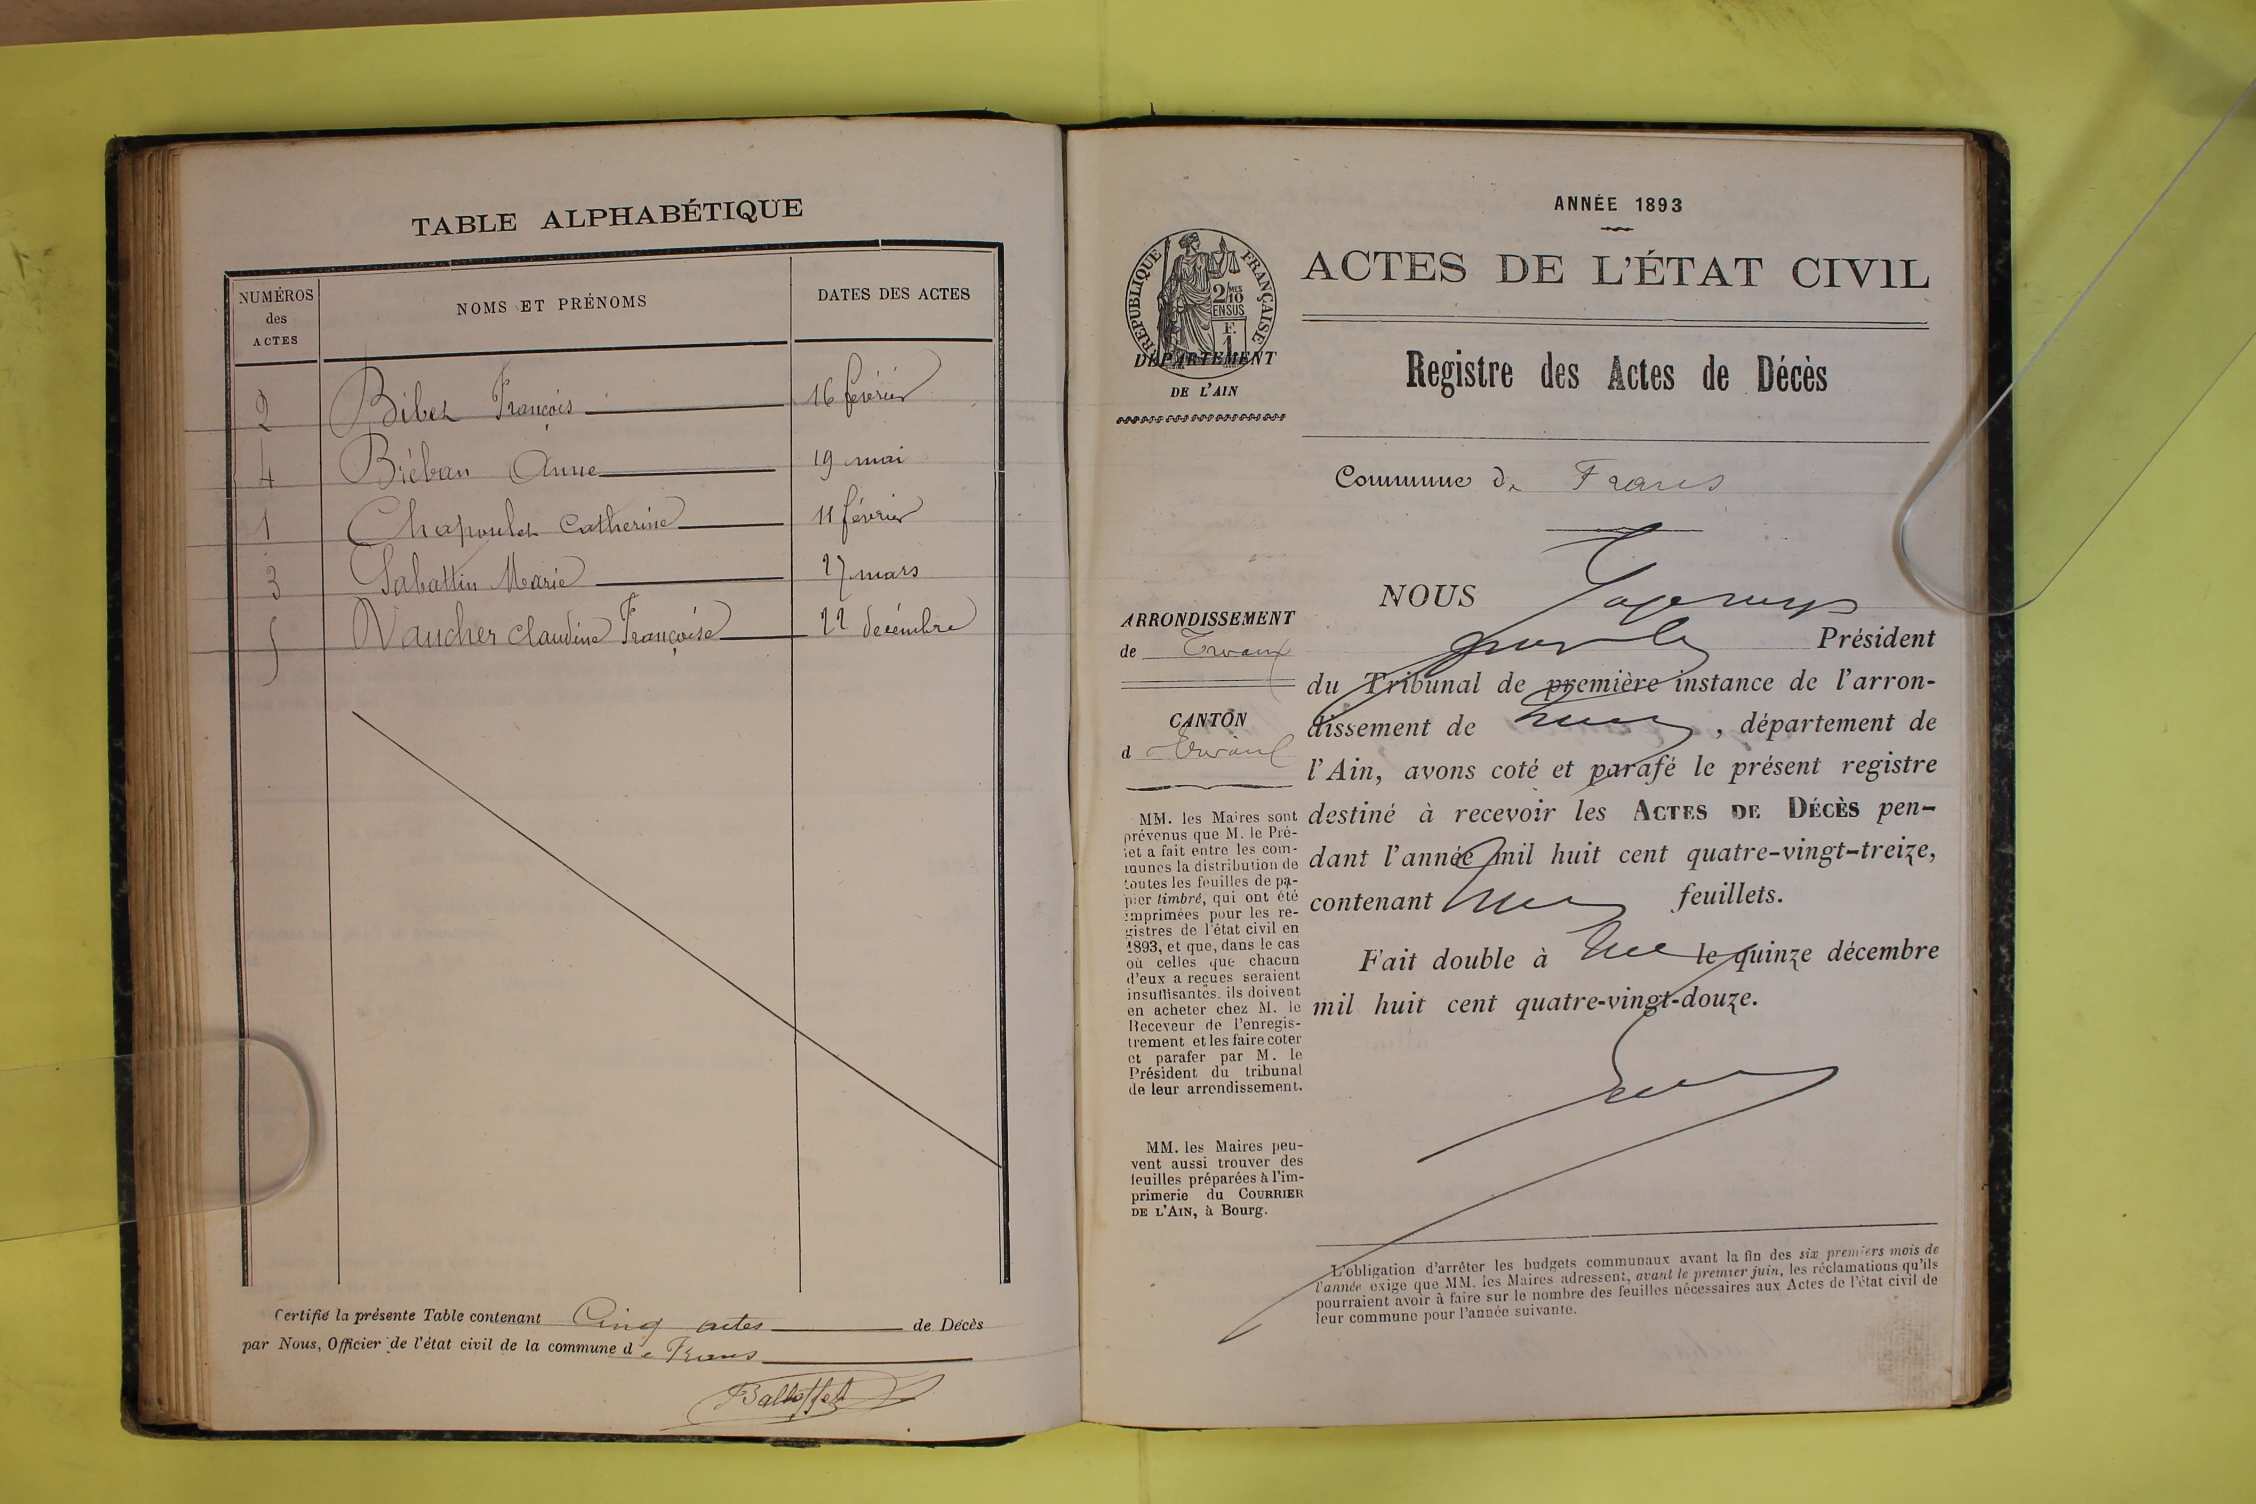 TABLE ALPHABÉTIQUE
NUMÉROS des ACTES
NOMS ET PRÉNOMS
DATES DES ACTES
2 Bibet François 16 février
4 Biéban Anne 19 mai
1 Chapoulet Catherine 11 février
3 Sabattin Marie 27 mars
5 Vaucher Claudine Françoise 22 décembre
Certifié la présente Table contenant Cinq actes de Décès
par Nous, Officier de l'état civil de la commune de Frans
Balloffet
ANNÉE 1893
RÉPUBLIQUE FRANÇAISE
2/10 MES
EN SUS
F.
1
ACTES DE L'ÉTAT CIVIL
DÉPARTEMENT
DE L'AIN
Registre des Actes de Décès
Commune de Frans
ARRONDISSEMENT
de Trévoux
CANTON
d Trévoux
MM. les Maires sont
prévenus que M. le Pré-
fet a fait entre les com-
munes la distribution de
toutes les feuilles de pa-
pier timbré, qui ont été
imprimées pour les re-
gistres de l'état civil en
1893, et que, dans le cas
où celles que chacun
d'eux a reçues seraient
insuffisantes, ils doivent
en acheter chez M. le
Receveur de l'enregis-
trement et les faire coter
et parafer par M. le
Président du tribunal
de leur arrondissement.
MM. les Maires peu-
vent aussi trouver des
feuilles préparées à l'im-
primerie du COURRIER
DE L'AIN, à Bourg.
NOUS
Président
du Tribunal de première instance de l'arron-
dissement de , département de
l'Ain, avons coté et parafé le présent registre
destiné à recevoir les ACTES DE DÉCÈS pen-
dant l'année mil huit cent quatre-vingt-treize,
contenant feuillets.
Fait double à le quinze décembre
mil huit cent quatre-vingt-douze.
L'obligation d'arrêter les budgets communaux avant la fin des six premiers mois de
l'année exige que MM. les Maires adressent, avant le premier juin, les réclamations qu'ils
pourraient avoir à faire sur le nombre des feuilles nécessaires aux Actes de l'état civil de
leur commune pour l'année suivante.